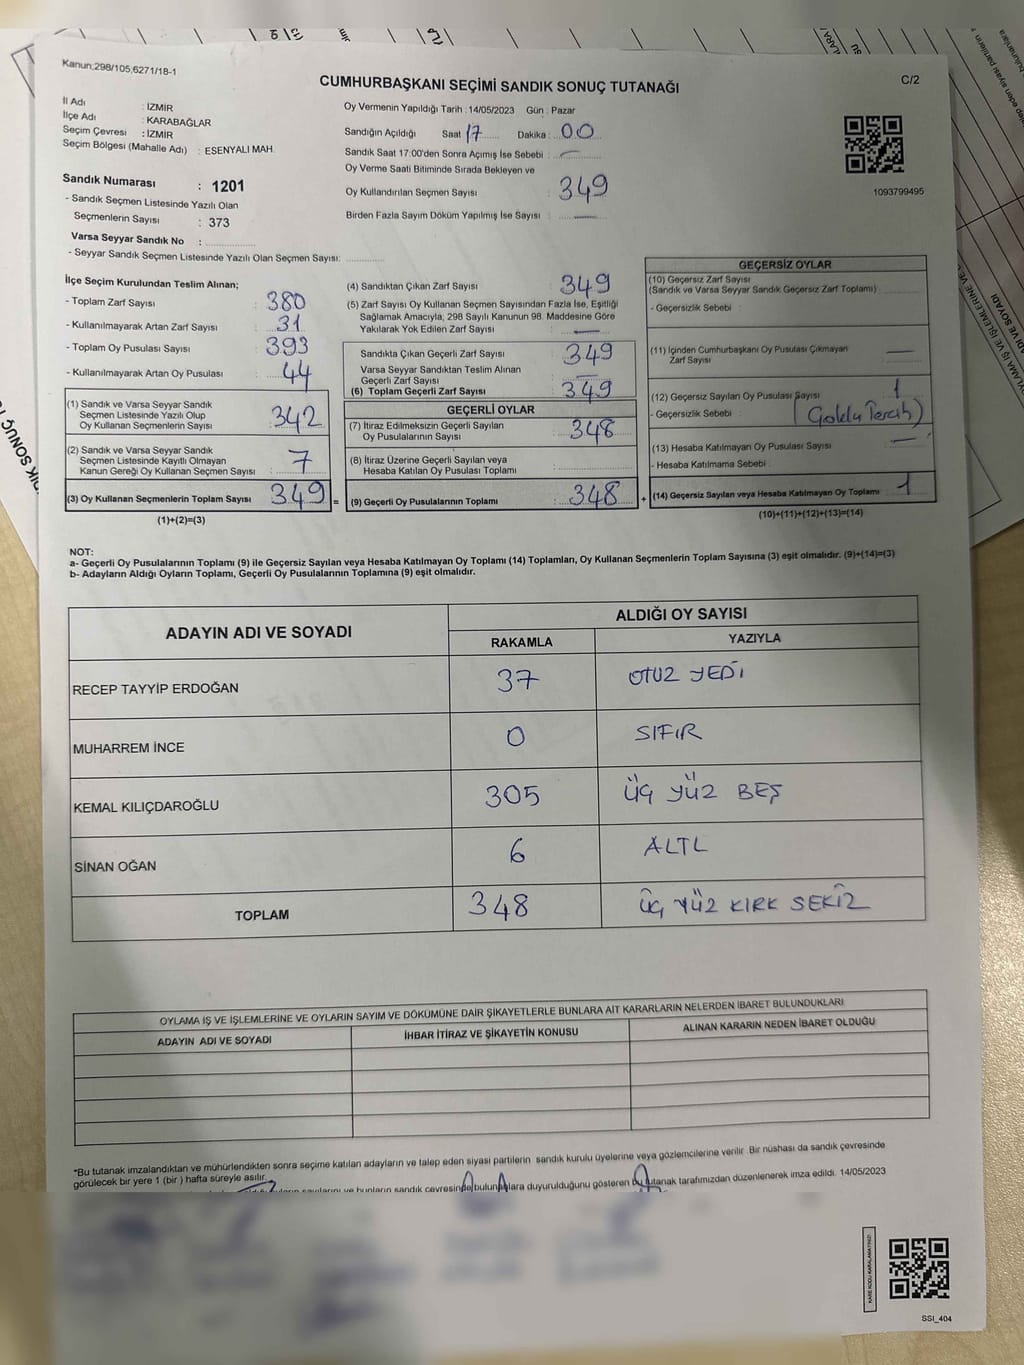 Kanun;298/105,6271/18-1
CUMHURBAŞKANI SEÇİMİ SANDIK SONUÇ TUTANAĞI
C/2
İl Adı : İZMİR
İlçe Adı : KARABAĞLAR
Seçim Çevresi : İZMİR
Seçim Bölgesi (Mahalle Adı) : ESENYALI MAH.
Sandık Numarası : 1201
- Sandık Seçmen Listesinde Yazılı Olan
Seçmenlerin Sayısı : 373
Varsa Seyyar Sandık No :
- Seyyar Sandık Seçmen Listesinde Yazılı Olan Seçmen Sayısı:
Oy Vermenin Yapıldığı Tarih : 14/05/2023 Gün : Pazar
Sandığın Açıldığı Saat 17 Dakika : 00
Sandık Saat 17:00'den Sonra Açımış İse Sebebi : —
Oy Verme Saati Bitiminde Sırada Bekleyen ve
Oy Kullandırılan Seçmen Sayısı : 349
Birden Fazla Sayım Döküm Yapılmış İse Sayısı : —
1093799495
İlçe Seçim Kurulundan Teslim Alınan;
- Toplam Zarf Sayısı : 380
- Kullanılmayarak Artan Zarf Sayısı : 31
- Toplam Oy Pusulası Sayısı : 393
- Kullanılmayarak Artan Oy Pusulası : 44
(1) Sandık ve Varsa Seyyar Sandık
Seçmen Listesinde Yazılı Olup
Oy Kullanan Seçmenlerin Sayısı : 342
(2) Sandık ve Varsa Seyyar Sandık
Seçmen Listesinde Kayıtlı Olmayan
Kanun Gereği Oy Kullanan Seçmen Sayısı : 7
(3) Oy Kullanan Seçmenlerin Toplam Sayısı : 349 =
(1)+(2)=(3)
(4) Sandıktan Çıkan Zarf Sayısı : 349
(5) Zarf Sayısı Oy Kullanan Seçmen Sayısından Fazla İse, Eşitliği
Sağlamak Amacıyla; 298 Sayılı Kanunun 98. Maddesine Göre
Yakılarak Yok Edilen Zarf Sayısı : —
Sandıkta Çıkan Geçerli Zarf Sayısı : 349
Varsa Seyyar Sandıktan Teslim Alınan
Geçerli Zarf Sayısı : —
(6) Toplam Geçerli Zarf Sayısı : 349
GEÇERLİ OYLAR
(7) İtiraz Edilmeksizin Geçerli Sayılan
Oy Pusulalarının Sayısı : 348
(8) İtiraz Üzerine Geçerli Sayılan veya
Hesaba Katılan Oy Pusulası Toplamı :
(9) Geçerli Oy Pusulalarının Toplamı : 348 +
GEÇERSİZ OYLAR
(10) Geçersiz Zarf Sayısı
(Sandık ve Varsa Seyyar Sandık Geçersiz Zarf Toplamı) :
- Geçersizlik Sebebi :
(11) İçinden Cumhurbaşkanı Oy Pusulası Çıkmayan
Zarf Sayısı : —
(12) Geçersiz Sayılan Oy Pusulası Sayısı : 1
- Geçersizlik Sebebi : (Çoklu Tercih)
(13) Hesaba Katılmayan Oy Pusulası Sayısı : —
- Hesaba Katılmama Sebebi :
(14) Geçersiz Sayılan veya Hesaba Katılmayan Oy Toplamı : 1
(10)+(11)+(12)+(13)=(14)
NOT:
a- Geçerli Oy Pusulalarının Toplamı (9) ile Geçersiz Sayılan veya Hesaba Katılmayan Oy Toplamı (14) Toplamları, Oy Kullanan Seçmenlerin Toplam Sayısına (3) eşit olmalıdır. (9)+(14)=(3)
b- Adayların Aldığı Oyların Toplamı, Geçerli Oy Pusulalarının Toplamına (9) eşit olmalıdır.
ADAYIN ADI VE SOYADI
ALDIĞI OY SAYISI
RAKAMLA YAZIYLA
RECEP TAYYİP ERDOĞAN 37 OTUZ YEDİ
MUHARREM İNCE 0 SIFIR
KEMAL KILIÇDAROĞLU 305 ÜÇ YÜZ BEŞ
SİNAN OĞAN 6 ALTI
TOPLAM 348 ÜÇ YÜZ KIRK SEKİZ
OYLAMA İŞ VE İŞLEMLERİNE VE OYLARIN SAYIM VE DÖKÜMÜNE DAİR ŞİKAYETLERLE BUNLARA AİT KARARLARIN NELERDEN İBARET BULUNDUKLARI
ADAYIN ADI VE SOYADI
İHBAR İTİRAZ VE ŞİKAYETİN KONUSU
ALINAN KARARIN NEDEN İBARET OLDUĞU
*Bu tutanak imzalandıktan ve mühürlendikten sonra seçime katılan adayların ve talep eden siyasi partilerin sandık kurulu üyelerine veya gözlemcilerine verilir. Bir nüshası da sandık çevresinde
görülecek bir yere 1 (bir ) hafta süreyle asılır.
bunların sandık çevresinde bulunanlara duyurulduğunu gösteren bu tutanak tarafımızdan düzenlenerek imza edildi. 14/05/2023
KARE KODU KARALAMAYINIZ!
SSI_404